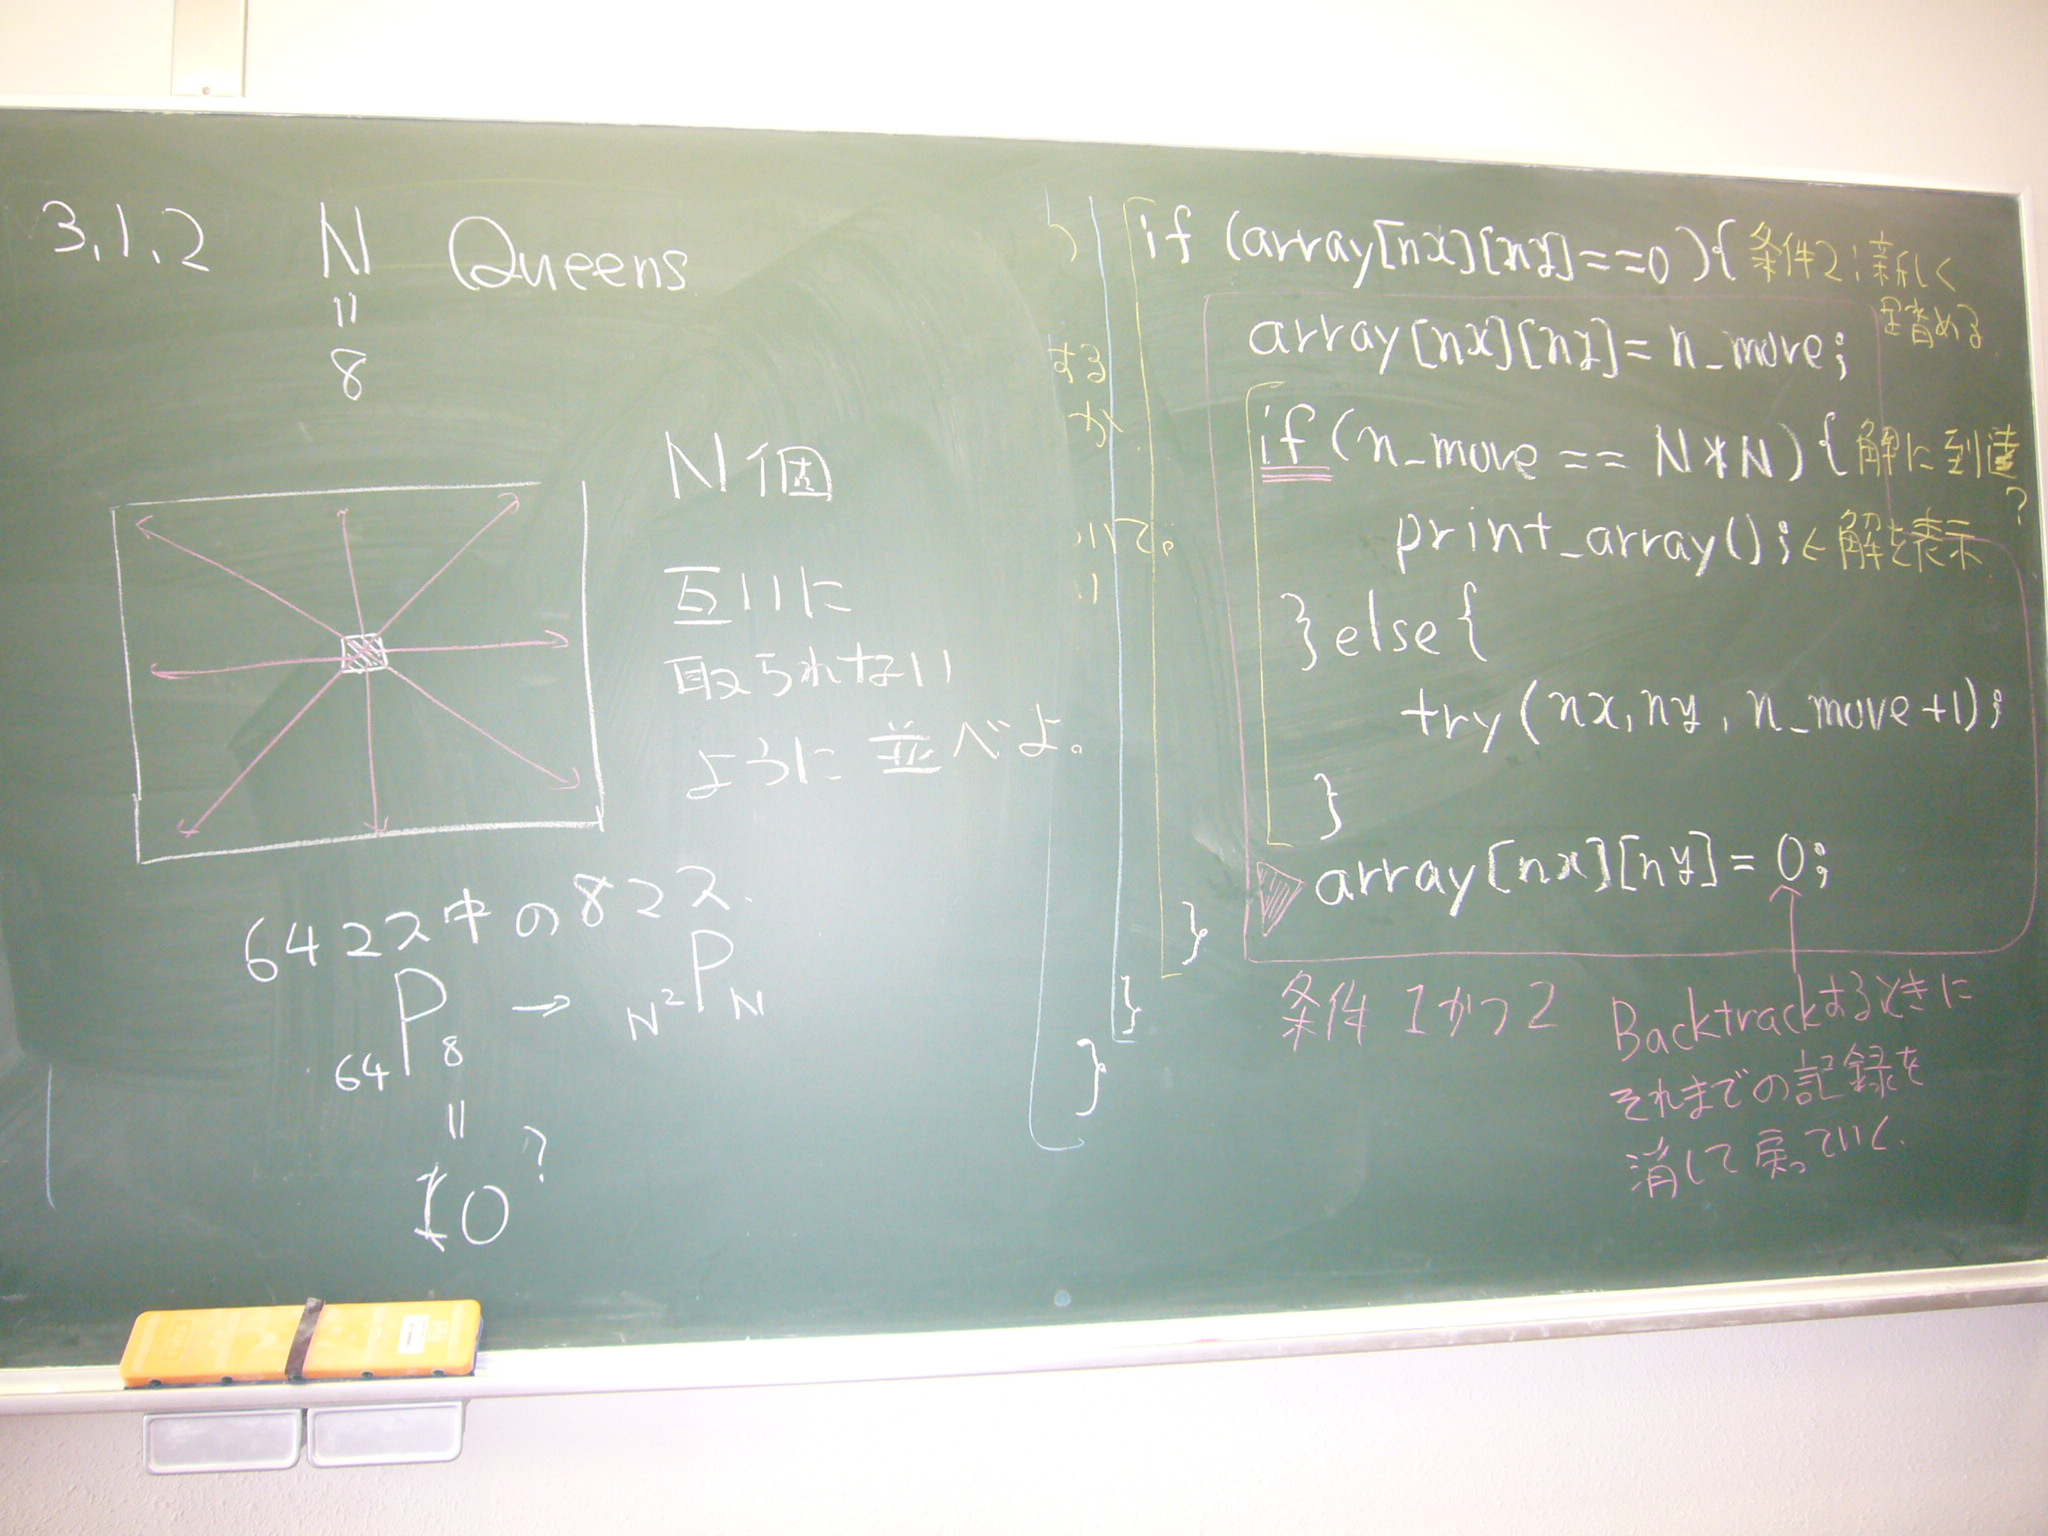 3.1.2 N Queens
=
8
N個
互いに
取られない
ように並べよ。
64マス中の8マス.
64P8 → N²PN
=
10?
する
か
いて。
if (array[nx][ny]==0){ 条件2:新しく
足踏める.
array[nx][ny]=n_move;
if (n_move == N*N){ 解に到達
?
print_array(); ← 解を表示.
}else{
try(nx,ny,n_move+1);
}
array[nx][ny]=0;
}
}
}
条件1かつ2
Backtrackするときに
それまでの記録を
消して戻っていく.